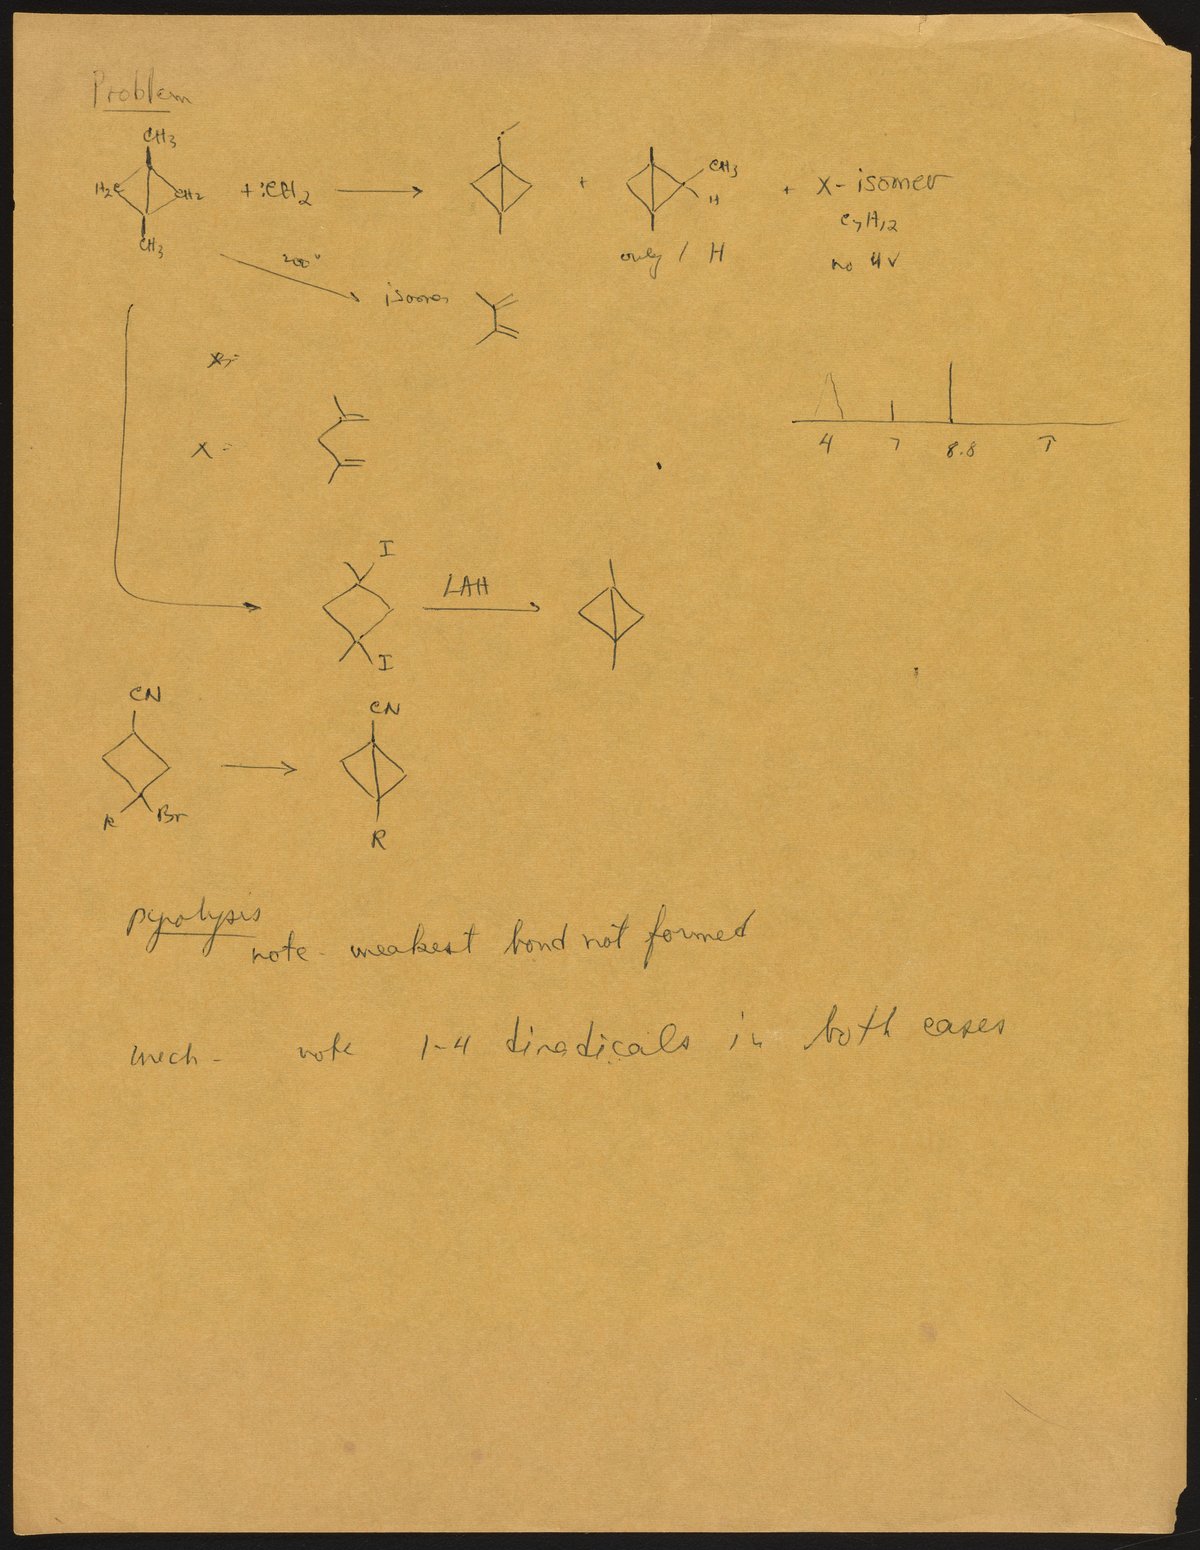 Problem
CH3
H2C CH2 + :CH2 + CH3 H + X- isomer
CH3 only 1 H C7H12
no uv
200°
isomer
X =
4 7 8.8 τ
I
LAH
I
CN
CN
R Br
R
pyrolysis
note - weakest bond not formed
mech - note 1-4 diradicals in both cases